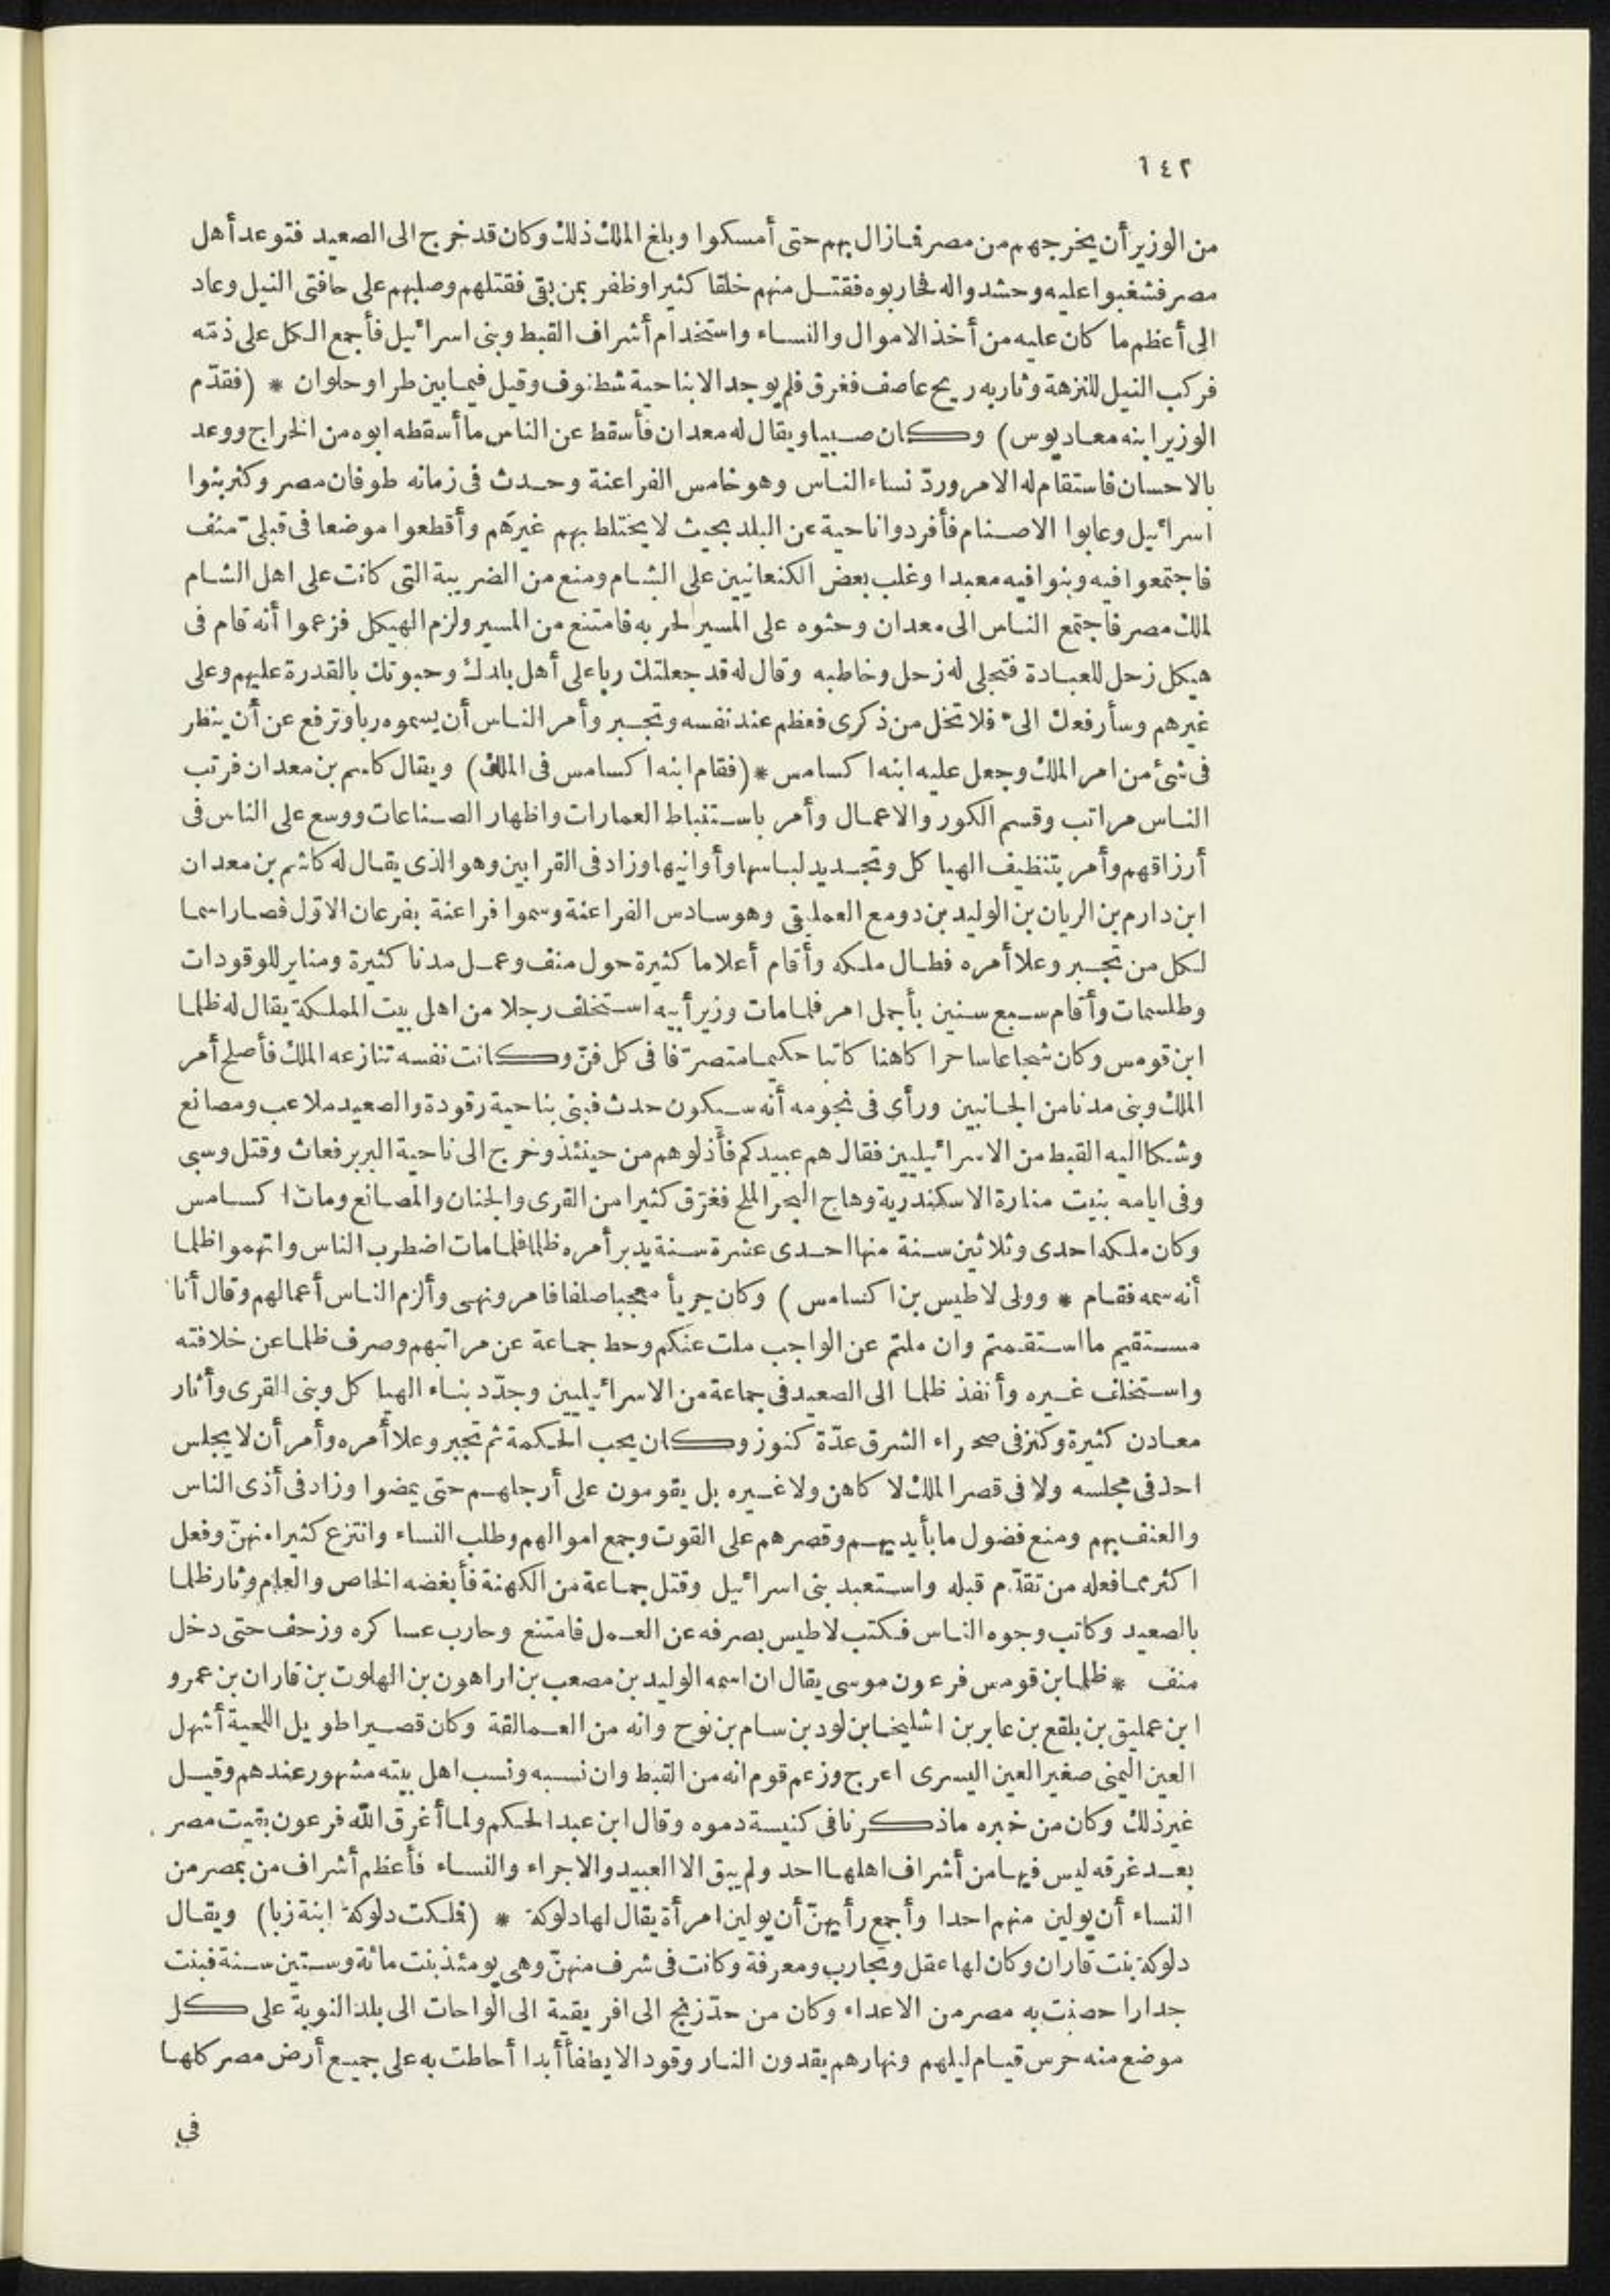 ١٤٢
من الوزير أن يخرجهم من مصر فمازال بهم حتى أمسكوا وبلغ الملك ذلك وكان قد خرج الى الصعيد فتوعد أهل
مصر فشغبوا عليه وحشدوا له فحاربوه فقتل منهم خلقا كثيرا وظفر بمن بقى فقتلهم وصلبهم على حافتى النيل وعاد
الى أعظم ما كان عليه من أخذ الاموال والنساء واستخدام أشراف القبط وبنى اسرائيل فأجمع الكل على ذمّه
فركب النيل للنزهة وثار به ريح عاصف فغرق فلم يوجد الا بناحية شطنوف وقيل فيما بين طرا وحلوان * (فقدّم
الوزير ابنه معاديوس) وكان صبيا ويقال له معدان فأسقط عن الناس ما أسقطه ابوه من الخراج ووعد
بالاحسان فاستقام له الامر وردّ نساء الناس وهو خامس الفراعنة وحدث فى زمانه طوفان مصر وكثر بنوا
اسرائيل وعابوا الاصنام فأفردوا ناحية عن البلد بحيث لا يختلط بهم غيرهم وأقطعوا موضعا فى قبلىّ منف
فاجتمعوا فيه وبنوا فيه معبدا وغلب بعض الكنعانيين على الشام ومنع من الضريبة التى كانت على اهل الشام
لملك مصر فاجتمع الناس الى معدان وحثوه على المسير لحربه فامتنع من المسير ولزم الهيكل فزعموا أنه قام فى
هيكل زحل للعبادة فتجلى له زحل وخاطبه وقال له قد جعلتك ربا على أهل بلدك وحبوتك بالقدرة عليهم وعلى
غيرهم وسأرفعك الىّ فلا تخل من ذكرى فعظم عند نفسه وتجبر وأمر الناس أن يسموه ربا وترفع عن أن ينظر
فى شئ من امر الملك وجعل عليه ابنه اكسامس * (فقام ابنه اكسامس فى الملك) ويقال كاسم بن معدان فرتب
الناس مراتب وقسم الكور والاعمال وأمر باستنباط العمارات واظهار الصناعات ووسع على الناس فى
أرزاقهم وأمر بتنظيف الهياكل وتجديد لباسها وأوانيها وزاد فى القرابين وهو الذى يقال له كاشم بن معدان
ابن دارم بن الريان بن الوليد بن دومع العمليقى وهو سادس الفراعنة وسموا فراعنة بفرعان الاوّل فصار اسما
لكل من تجبر وعلا أمره فطال ملكه وأقام أعلاما كثيرة حول منف وعمل مدنا كثيرة ومناير للوقودات
وطلسمات وأقام سبع سنين بأجمل امر فلما مات وزير أبيه استخلف رجلا من اهل بيت المملكة يقال له ظلما
ابن قومس وكان شجاعا ساحرا كاهنا كاتبا حكيما متصرّفا فى كل فنّ وكانت نفسه تنازعه الملك فأصلح أمر
الملك وبنى مدنا من الجانبين ورأى فى نجومه أنه سيكون حدث فبنى بناحية رقودة والصعيد ملاعب ومصانع
وشكا اليه القبط من الاسرائيليين فقال هم عبيدكم فأذلوهم من حينئذ وخرج الى ناحية البربر فعاث وقتل وسبى
وفى ايامه بنيت منارة الاسكندرية وهاج البحر الملح فغرّق كثيرا من القرى والجنان والمصانع ومات اكسامس
وكان ملكه احدى وثلاثين سنة منها احدى عشرة سنة يدبر أمره ظلما فلما مات اضطرب الناس واتهموا ظلما
أنه سمه فقام * وولى لاطيس بن اكسامس) وكان جريأ معجبا صلفا فامر ونهى وألزم الناس أعمالهم وقال أنا
مستقيم ما استقمتم وان ملتم عن الواجب ملت عنكم وحط جماعة عن مراتبهم وصرف ظلما عن خلافته
واستخلف غيره وأنفذ ظلما الى الصعيد فى جماعة من الاسرائيليين وجدّد بناء الهياكل وبنى القرى وأثار
معادن كثيرة وكنز فى صحراء الشرق عدّة كنوز وكان يحب الحكمة ثم تجبر وعلا أمره وأمر أن لا يجلس
احد فى مجلسه ولا فى قصر الملك لا كاهن ولا غيره بل يقومون على أرجلهم حتى يمضوا وزاد فى أذى الناس
والعنف بهم ومنع فضول ما بأيديهم وقصرهم على القوت وجمع اموالهم وطلب النساء وانتزع كثيرا منهنّ وفعل
اكثر مما فعله من تقدّم قبله واستعبد بنى اسرائيل وقتل جماعة من الكهنة فأبغضه الخاص والعام وثار ظلما
بالصعيد وكاتب وجوه الناس فكتب لاطيس بصرفه عن العمل فامتنع وحارب عساكره وزحف حتى دخل
منف * ظلما بن قومس فرعون موسى يقال ان اسمه الوليد بن مصعب بن اراهون بن الهلوت بن قاران بن عمرو
ابن عمليق بن بلقع بن عابر بن اشليخا بن لود بن سام بن نوح وانه من العمالقة وكان قصيرا طويل اللحية أشهل
العين اليمنى صغير العين اليسرى اعرج وزعم قوم انه من القبط وان نسبه ونسب اهل بيته مشهور عندهم وقيل
غير ذلك وكان من خبره ما ذكرنا فى كنيسة دموه وقال ابن عبد الحكم ولما أغرق الله فرعون بقيت مصر
بعد غرقه ليس فيها من أشراف اهلها احد ولم يبق الا العبيد والاجراء والنساء فأعظم أشراف من بمصر من
النساء أن يولين منهم احدا وأجمع رأيهنّ أن يولين امرأة يقال لها دلوكة * (فملكت دلوكة ابنة زبا) ويقال
دلوكة بنت قاران وكان لها عقل وتجارب ومعرفة وكانت فى شرف منهنّ وهى يومئذ بنت مائة وستين سنة فبنت
جدارا حصنت به مصر من الاعداء وكان من حدّ زنج الى افريقية الى الواحات الى بلد النوبة على كل
موضع منه حرس قيام ليلهم ونهارهم يقدون النار وقودا لا يطفأ أبدا أحاطت به على جميع أرض مصر كلها
فى